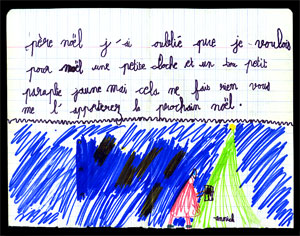 père noël j'ai oublié que je voulais
pour noël une petite cloche et un ton petit
parapluie jaune mai cela ne fais rien vous
me l'apporterez le prochain noël.